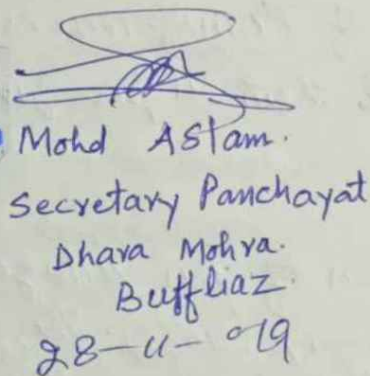 Mohd Aslam.
Secretary Panchayat
Dhara Mohra.
Buffliaz.
28-11-019